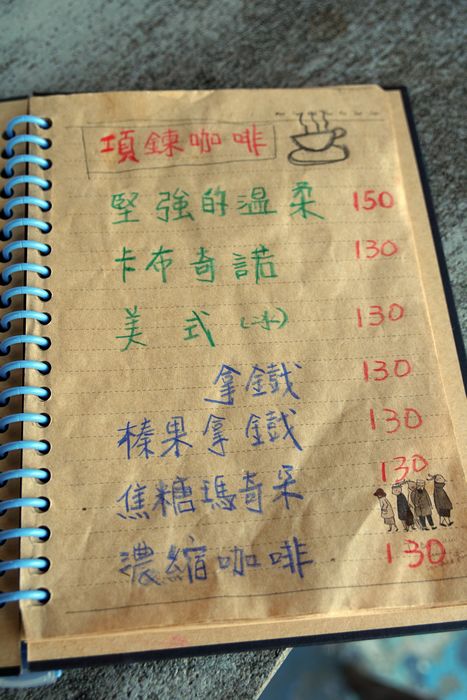 項鍊咖啡
堅強的溫柔 150
卡布奇諾 130
美式(冰) 130
拿鐵 130
榛果拿鐵 130
焦糖瑪奇朵 130
濃縮咖啡 130